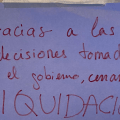 racias a las
decisiones tomad
el gobierno, cerra
IQUIDACIÓ